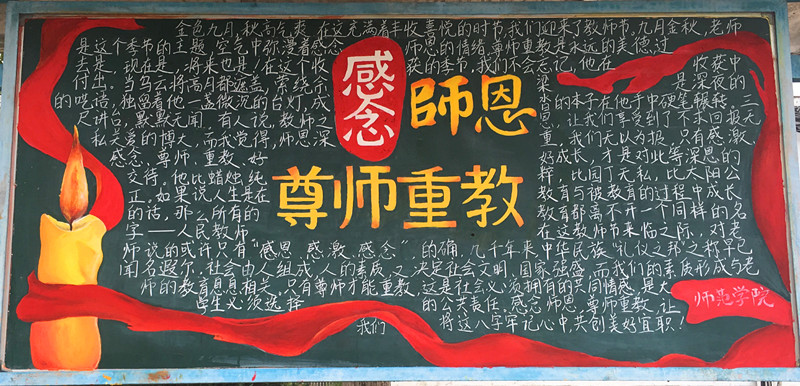 金色九月,秋高气爽,在这充满着丰收喜悦的时节,我们迎来了教师节,九月金秋,老师
是这个季节的主题,空气中弥漫着感念师恩的情绪,尊师重教是永远的美德,过
去是,现在是,将来也是!在这个收获的季节,我们不会忘记,他在收获中
付出。当乌云将高月都遮盖,萦绕示梁是深夜的
的呓语,独留着他一盏微沉的台灯,成杏的本子在他手中硬笔辗转,三
尺讲台,默默无闻。有人说,教师之恩,让我们享受到了不求回报,无
私关爱的博大,而我觉得,师恩深重,我们无以为报,只有感激、
感念、尊师、重教、好好成长,才是对此等深恩的
交待。他比蜡烛纯粹,比园丁无私,比太阳公
正。如果说人生是在教育与被教育的过程中成长
的话,那么所有的教育都离不开一个同样的名
字——人民教师在这教师节来临之际,对老
师说的或许只有“感恩、感激、感念”,的确,几千年来中华民族“礼仪之邦”之称早已
闻名遐尔,社会由人组成,人的素质,又决定社会文明,国家强盛,而我们的素质形成与老
师的教育息息相关,只有尊师才能重教,这是社会必须拥有的共同情感,是大
学生必须选择的公共责任。感念师恩,尊师重教,让
我们将这八字牢记心中,共创美好宜职!
感念
師恩
尊师重教
师范学院